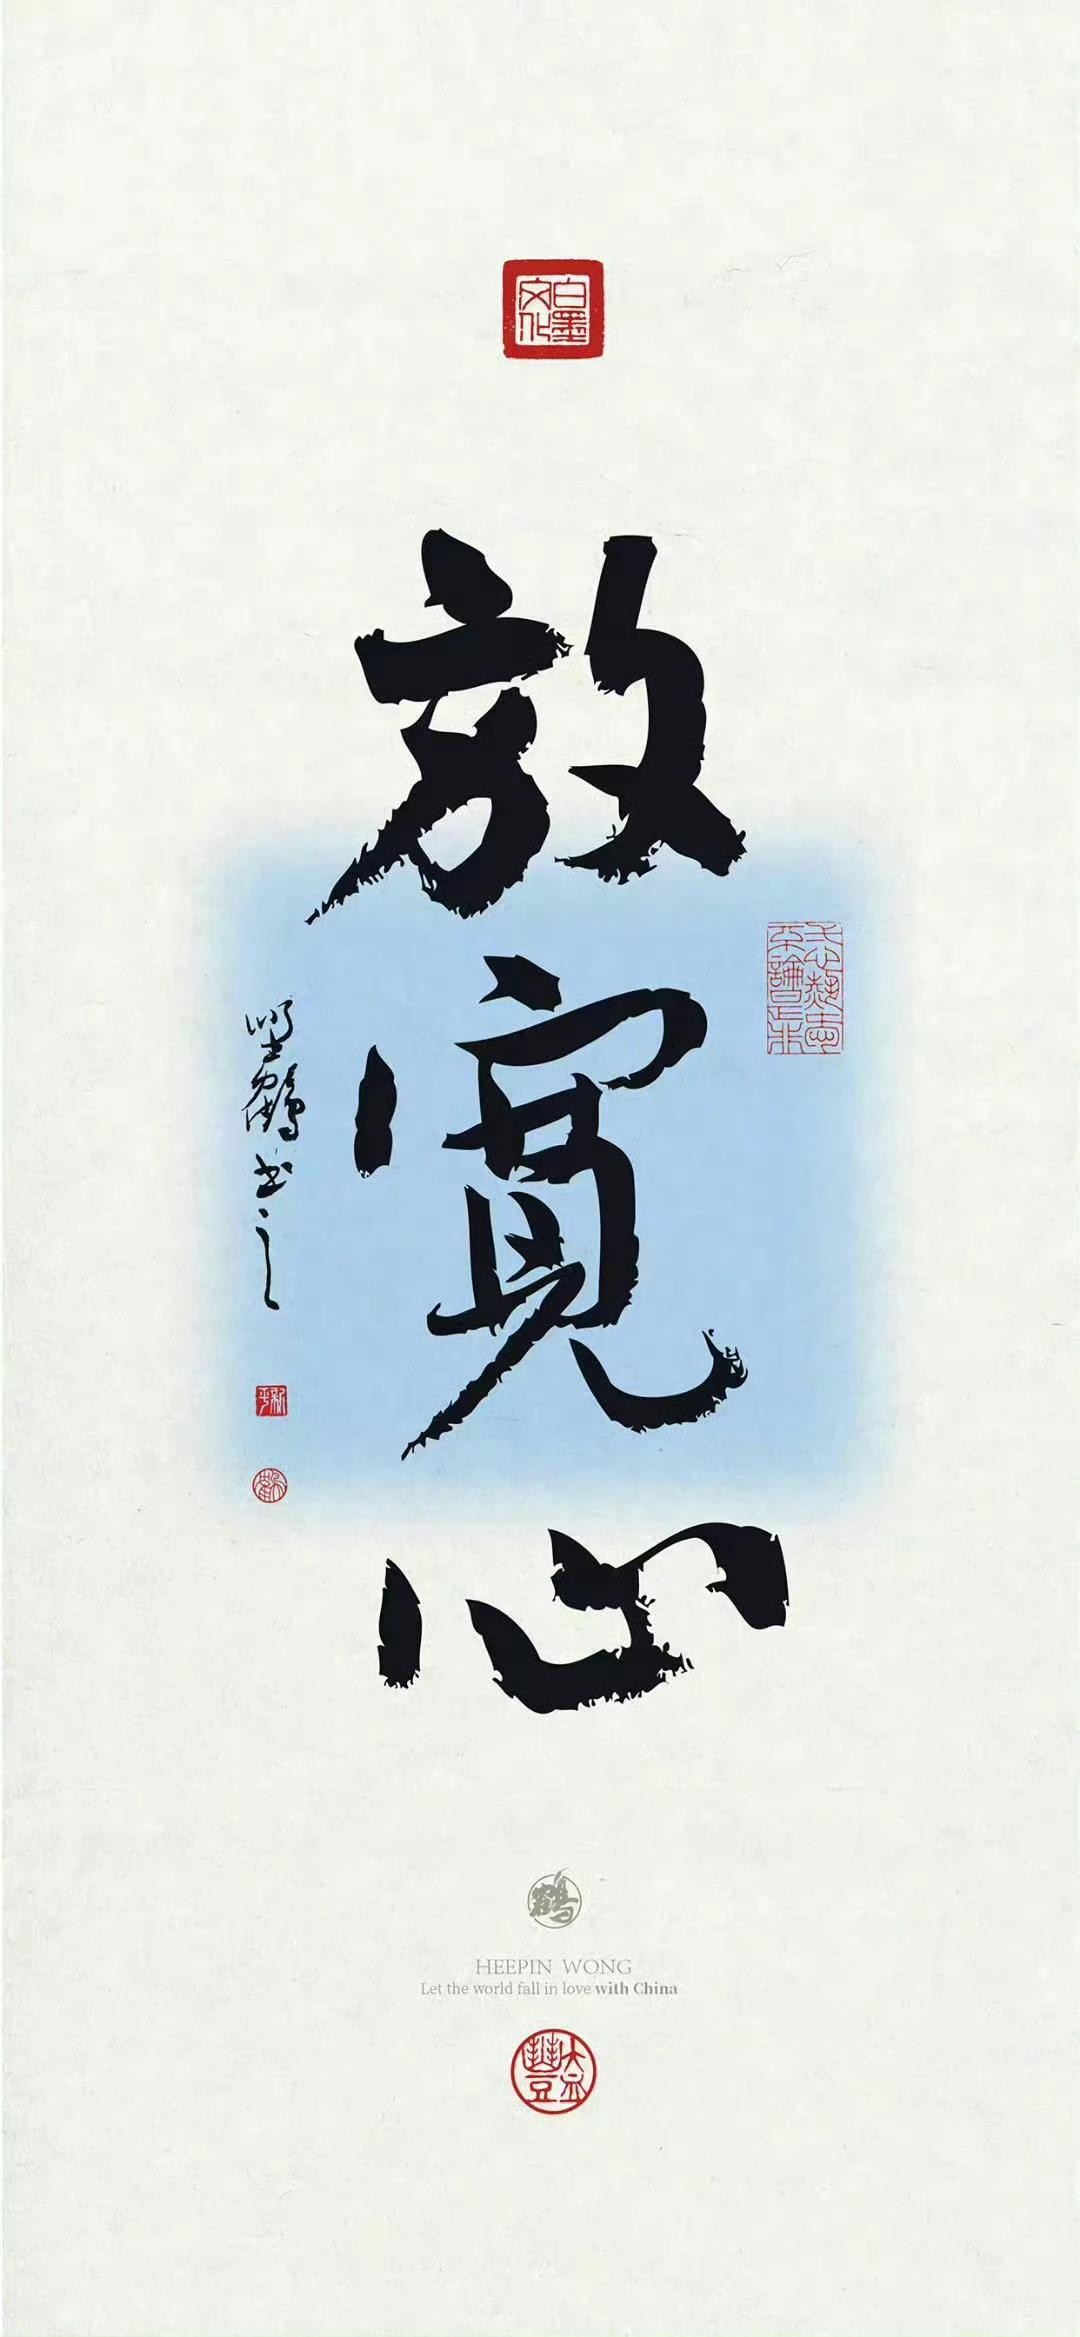 白墨
文化
放寬心
鶴書之
新平
鶴
HEEPIN WONG
Let the world fall in love with China